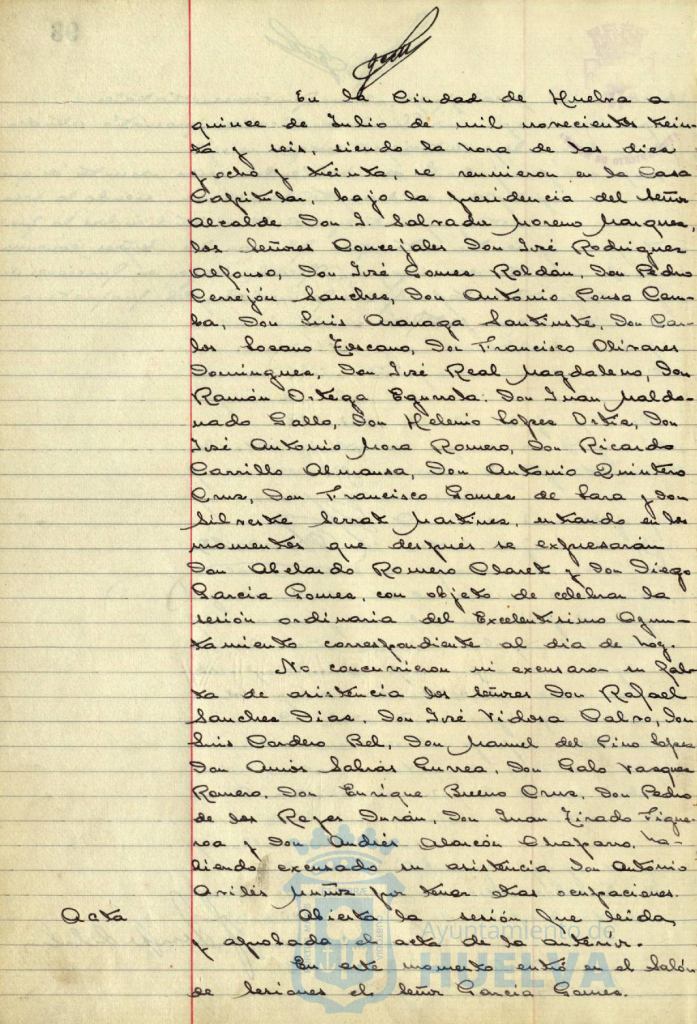 En la Ciudad de Huelva a
quince de Julio de mil novecientos trein-
ta y seis, siendo la hora de las diez
y ocho y treinta, se reunieron en la Casa
Capitular, bajo la presidencia del Señor
Alcalde Don J. Salvador Moreno Marquez,
los Señores Concejales Don José Rodriguez
Alfonso, Don José Gomez Roldán, Don Pedro
Cerrejón Sanchez, Don Antonio Pousa Cam-
ba, Don Luis Aranaga Santiuste, Don Car-
los Lozano Toscano, Don Francisco Olivares
Dominguez, Don José Real Magdaleno, Don
Ramón Ortega Egurrola, Don Juan Maldo-
nado Gallo, Don Helenio Lopez Ortiz, Don
José Antonio Mora Romero, Don Ricardo
Carrillo Almansa, Don Antonio Quintero
Cruz, Don Francisco Gomez de Lara y Don
Silvestre Serrat Martinez, entrando en los
momentos que después se expresarán
Don Abelardo Romero Claret y Don Diego
García Gomez, con objeto de celebrar la
sesión ordinaria del Excelentísimo Ayun-
tamiento correspondiente al dia de hoy.
No concurrieron ni excusaron su fal-
ta de asistencia los Señores Don Rafael
Sanchez Diaz, Don José Vidosa Calvo, Don
Luis Cordero Bel, Don Manuel del Pino Lopez
Don Amós Sabrás Gurrea, Don Galo Vazquez
Romero, Don Enrique Bueno Cruz, Don Pedro
de los Reyes Durán, Don Juan Tirado Figue-
roa y Don Andrés Alarcón Chaparro, ha-
biendo excusado su asistencia Don Antonio
Avilés Muñoz por tener otras ocupaciones.
Acta Abierta la sesión fue leida
y aprobada el acta de la anterior.
En este momento entró en el Salón
de Sesiones el Señor García Gomez.
Ayuntamiento de
HUELVA